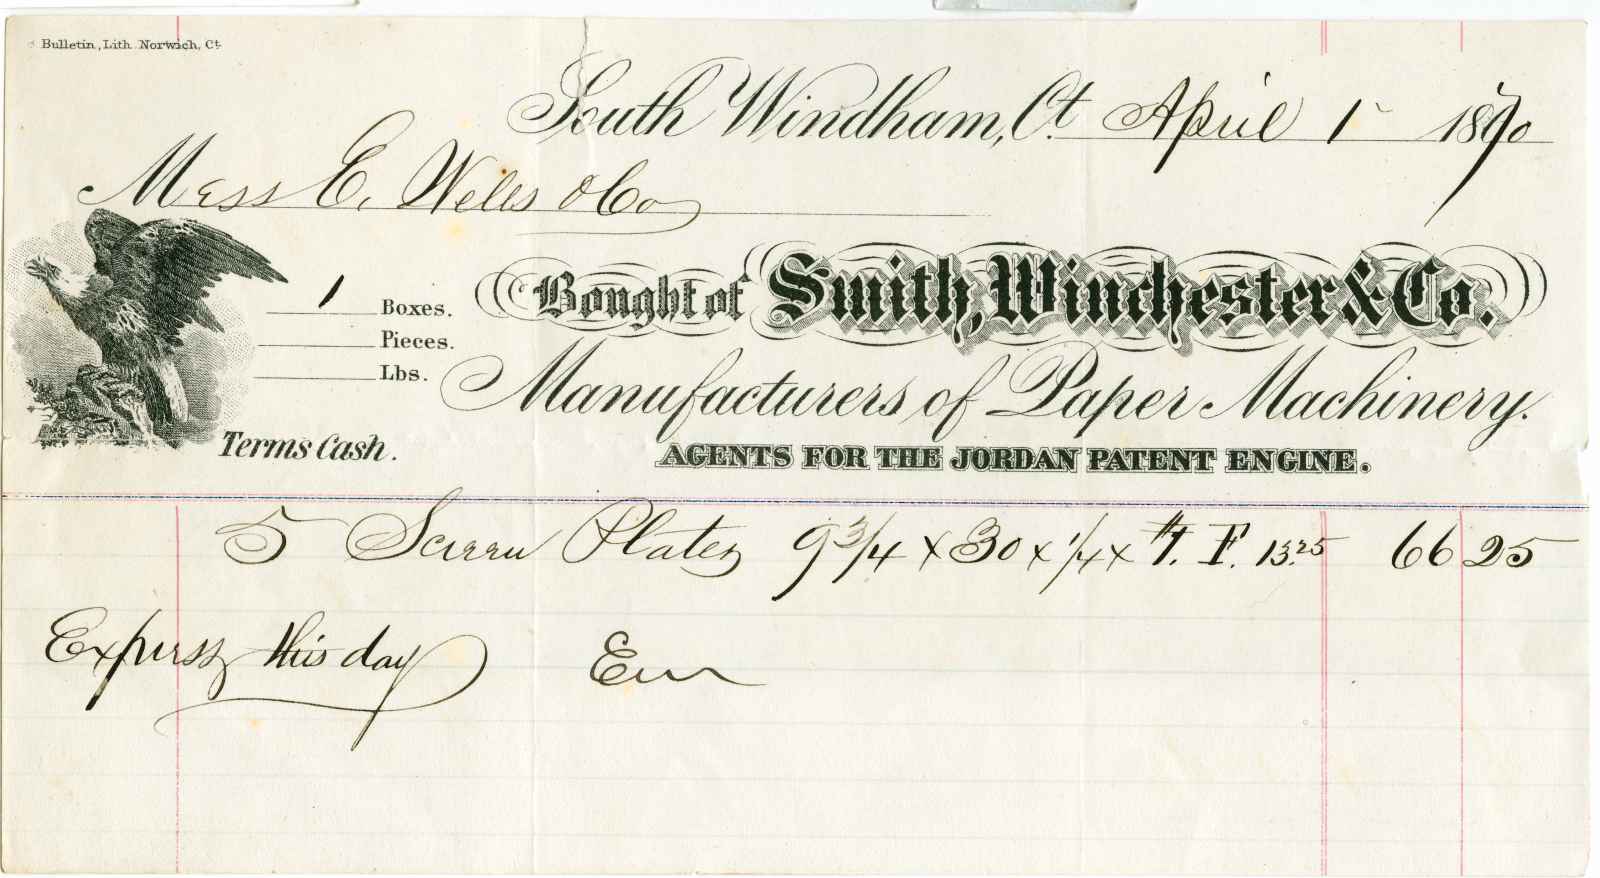 Bulletin, Lith. Norwich, Ct.
South Windham, Ct. April 1 1870
Mess E. Wells & Co
1 Boxes.
Pieces.
Lbs.
Bought of Smith, Winchester & Co.
Manufacturers of Paper Machinery.
Terms Cash.
AGENTS FOR THE JORDAN PATENT ENGINE.
5 Screen Plates 9 3/4 x 30 x 1/4 x F. 13.25 66 25
Express this day